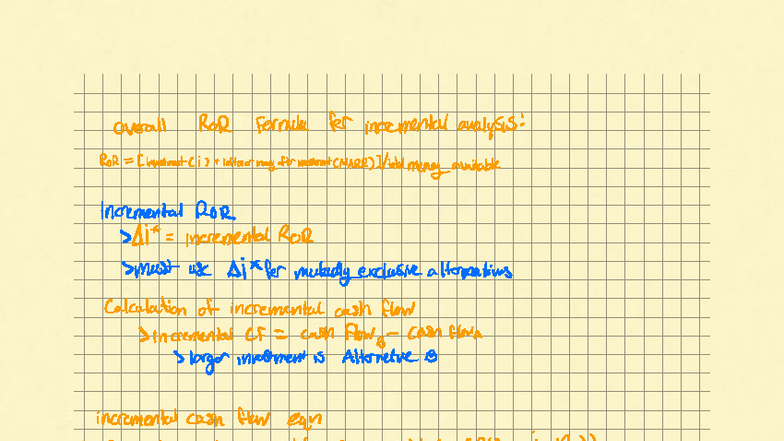 overall RoR Formula for incremental analysis:
RoR = [investment (i) + leftover money after investment (MARR)] / total money available
Incremental RoR
> Δi* = incremental RoR
> Must use Δi* for mutually exclusive alternatives
Calculation of incremental cash flow
> Incremental CF = cash flow_B - cash flow_A
> larger investment is Alternative B
incremental cash flow eqn